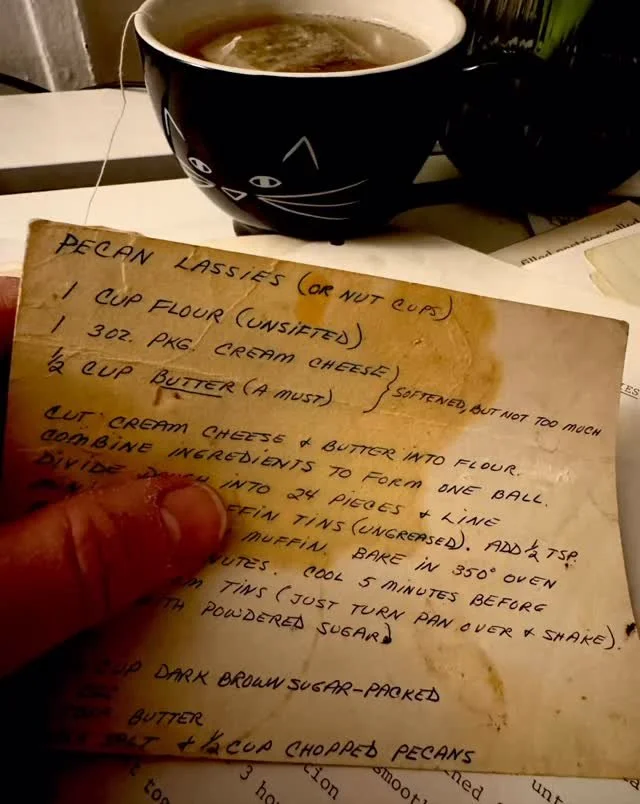 PECAN LASSIES (OR NUT CUPS)
1 CUP FLOUR (UNSIFTED)
1 3 OZ. PKG. CREAM CHEESE
½ CUP BUTTER (A MUST) } SOFTENED, BUT NOT TOO MUCH
CUT CREAM CHEESE & BUTTER INTO FLOUR.
COMBINE INGREDIENTS TO FORM ONE BALL.
DIVIDE DOUGH INTO 24 PIECES & LINE
TINS (UNGREASED). ADD ½ TSP.
MUFFIN. BAKE IN 350° OVEN
COOL 5 MINUTES BEFORE
TINS (JUST TURN PAN OVER & SHAKE).
POWDERED SUGAR)
CUP DARK BROWN SUGAR-PACKED
BUTTER
& ½ CUP CHOPPED PECANS
3